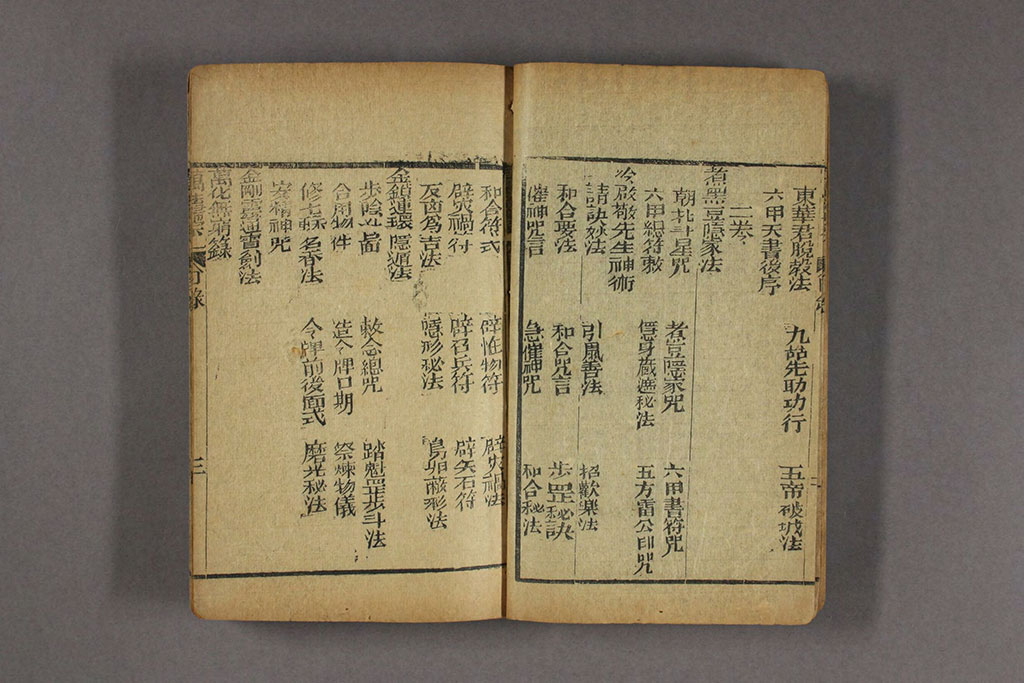 東華君脫殼法 九故先助功行 五帝破城法
六甲天書後序
二卷
煮黑豆隱家法
朝北斗星咒 煮豆隱家咒 六甲書符咒
六甲總符敕 隱身藏遮秘法 五方雷公印咒
冷啟敬先生神術
請訣妙法 引風善法 招歡樂法
和合憂法 和合咒言 步罡秘訣
催神咒言 急催神咒 和合秘法
和合符式 辟怪物符 辟災禍法
辟災禍符 辟召兵符 辟矢石符
反凶為吉法 隱形秘法 烏卵蔽形法
金鎖連環隱遁法
步陰 圖 救急總咒 踏魁罡步斗法
合用物件 造令牌口期 祭煉物儀
修 名香法 令牌前後面式 磨光秘法
寨精神咒
金剛 通雷劍法
萬化無窮符錄
三